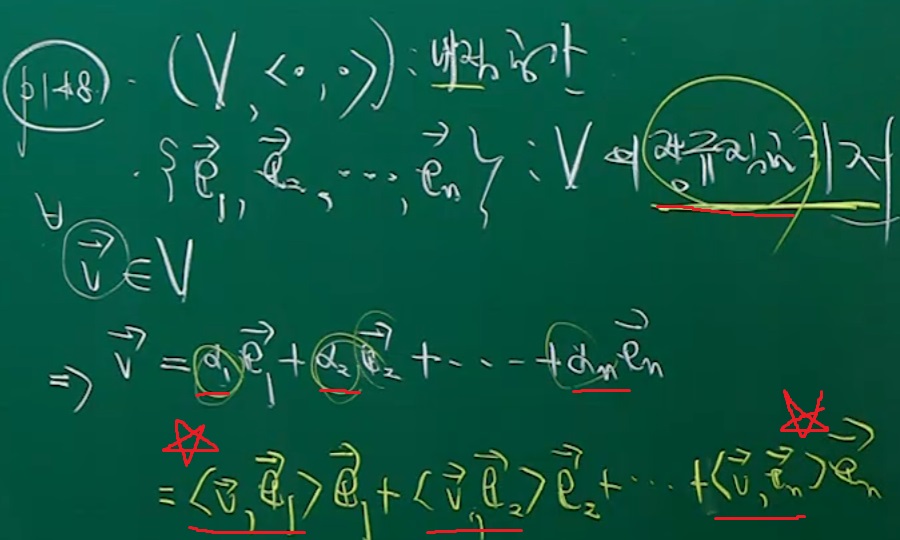 p148. (V, <∘,∘>) : 내적공간
· {e⃗₁, e⃗₂, ⋯, e⃗ₙ} : V의 정규직교기저
∀ v⃗ ∈ V
⇒ v⃗ = α₁e⃗₁ + α₂e⃗₂ + ⋯ + αₙe⃗ₙ
= <v⃗, e⃗₁>e⃗₁ + <v⃗, e⃗₂>e⃗₂ + ⋯ + <v⃗, e⃗ₙ>e⃗ₙ